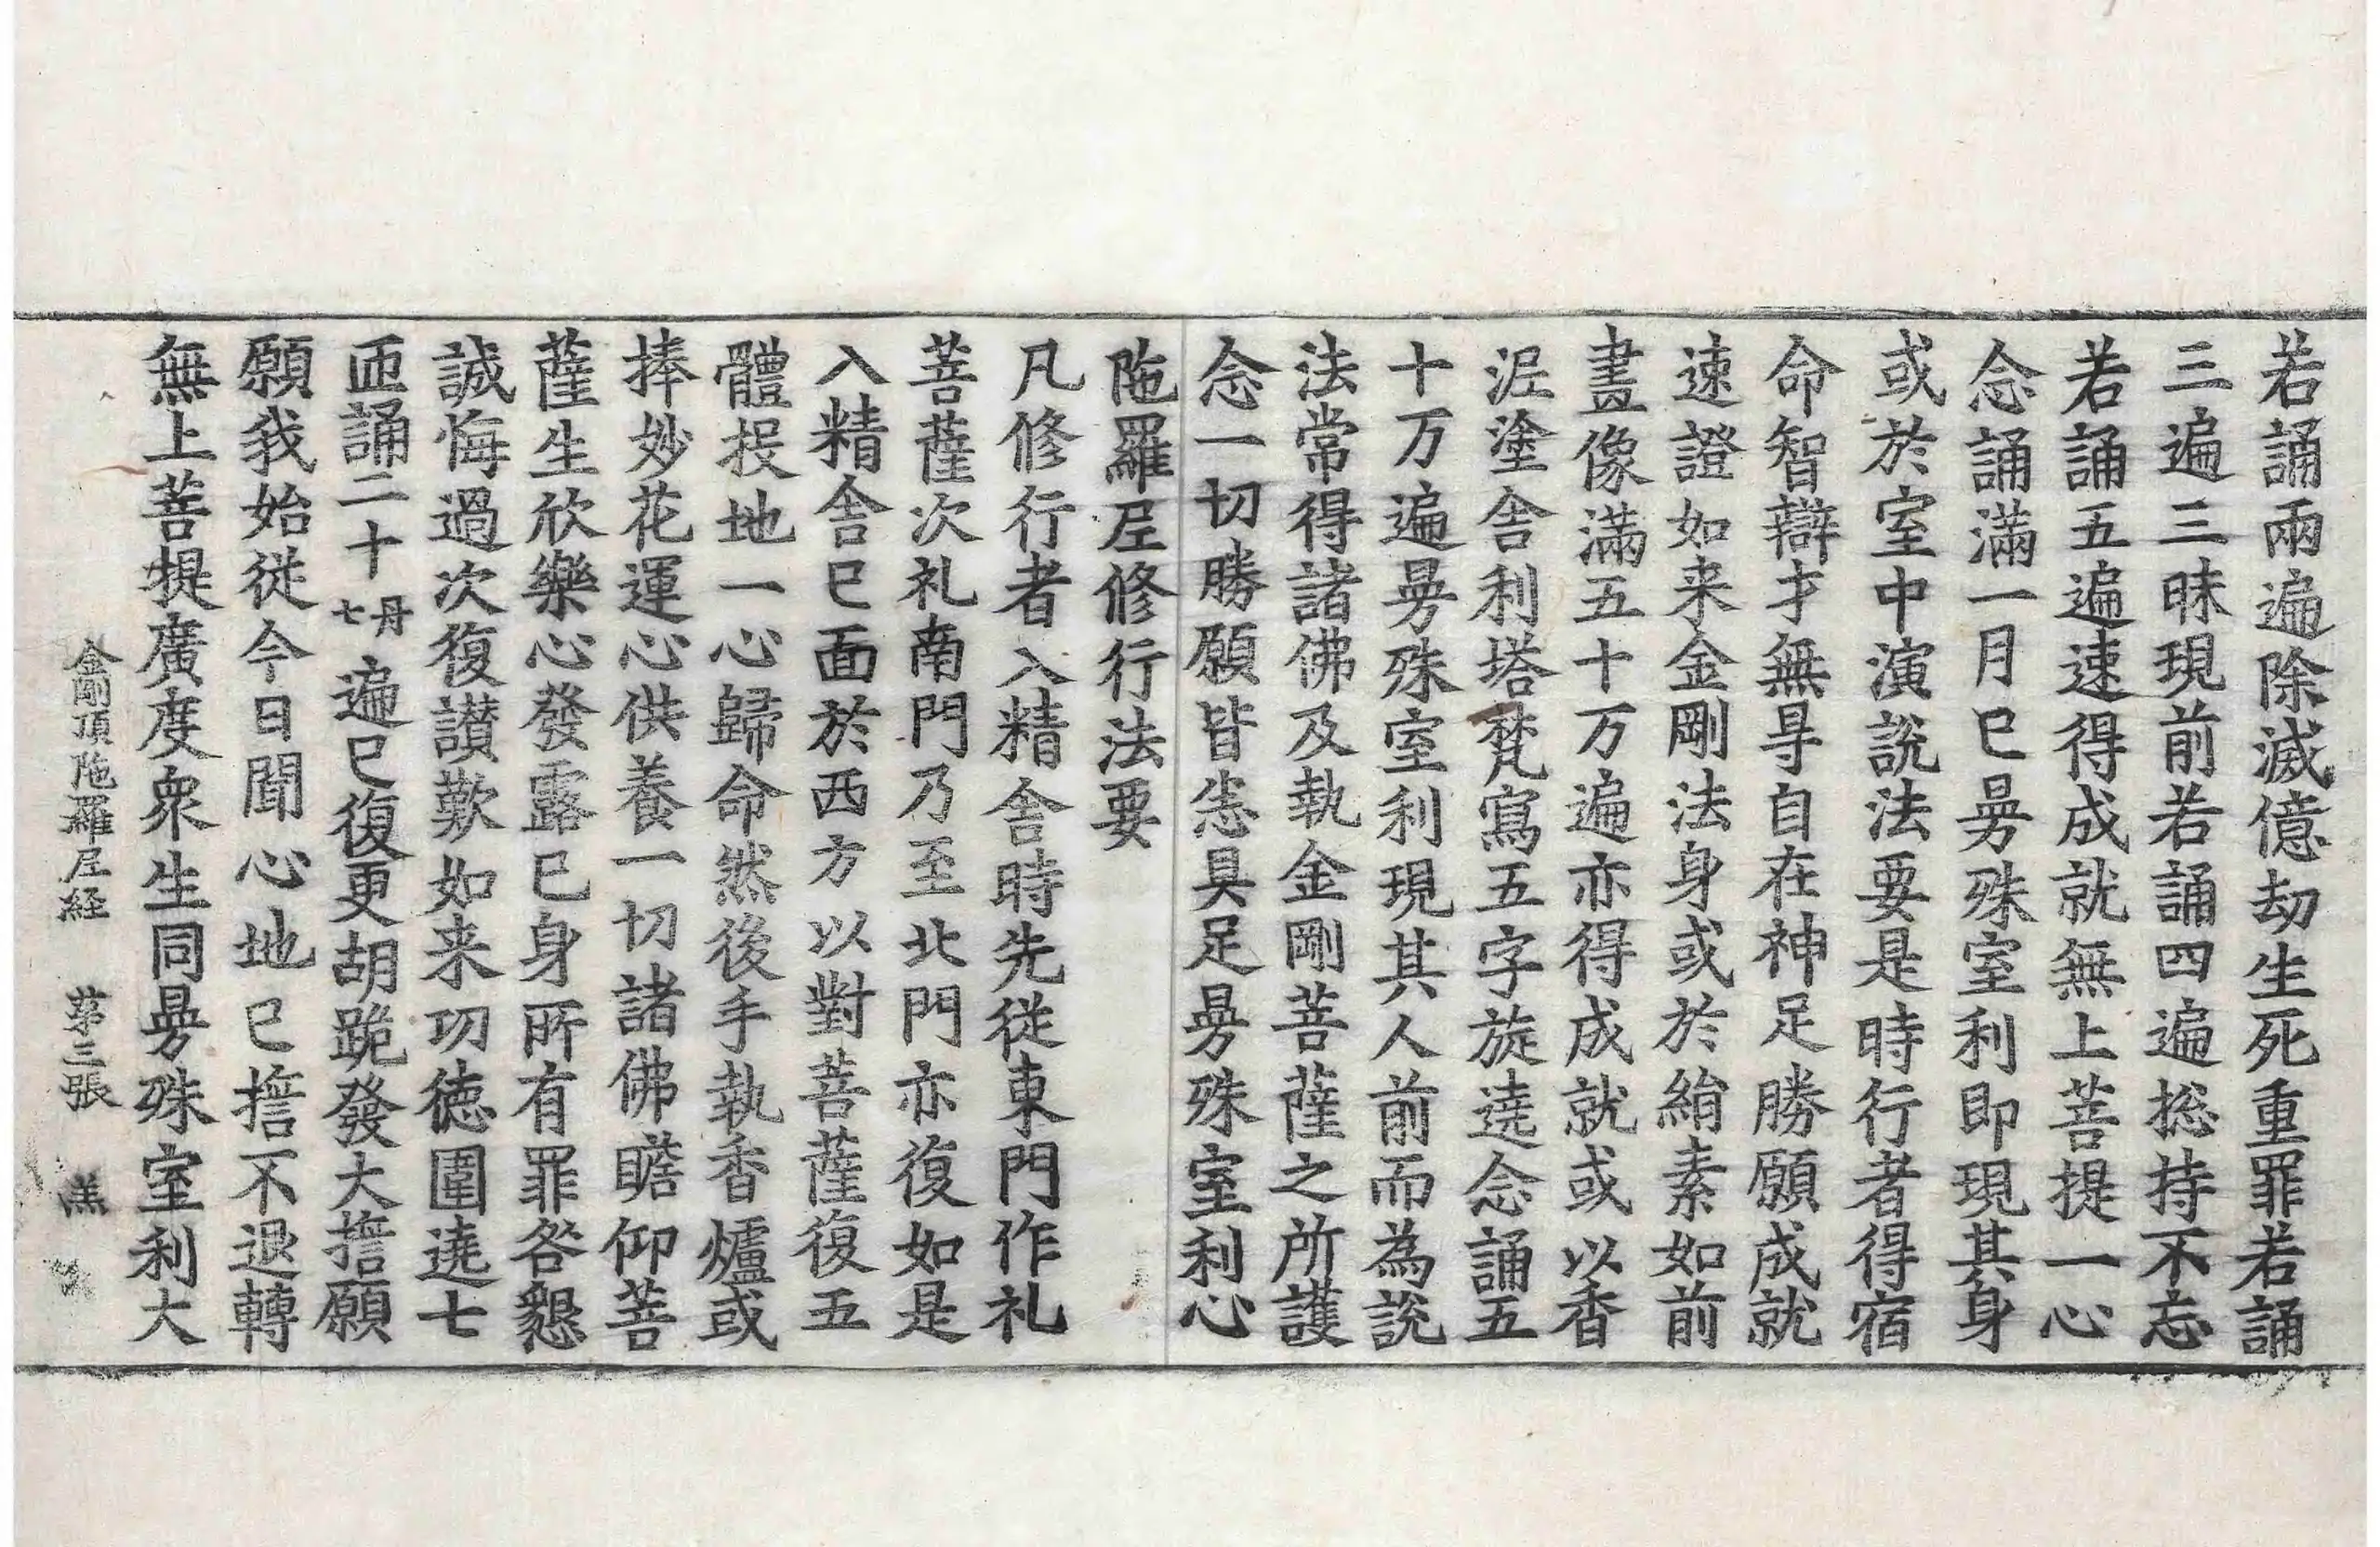 若誦兩遍除滅億劫生死重罪若誦
三遍三昧現前若誦四遍捴持不忘
若誦五遍速得成就無上菩提一心
念誦滿一月已曼殊室利即現其身
或於室中演說法要是時行者得宿
命智辯才無㝵自在神足勝願成就
速證如来金剛法身或於絹素如前
畫像滿五十万遍亦得成就或以香
泥塗舍利塔梵寫五字旋遶念誦五
十万遍曼殊室利現其人前而為說
法常得諸佛及執金剛菩薩之所護
念一切勝願皆悉具足曼殊室利心
陁羅尼修行法要
凡修行者入精舍時先從東門作礼
菩薩次礼南門乃至北門亦復如是
入精舍已面於西方以對菩薩復五
體投地一心歸命然後手執香爐或
捧妙花運心供養一切諸佛瞻仰菩
薩生欣樂心發露已身所有罪咎懇
誠悔過次復讃歎如来功徳圍遶七
匝誦二十丹七遍已復更胡跪發大擔願
願我始從今日聞心地已擔不退轉
無上菩提廣度衆生同曼殊室利大
金剛頂陁羅尼経 苐三張 羔